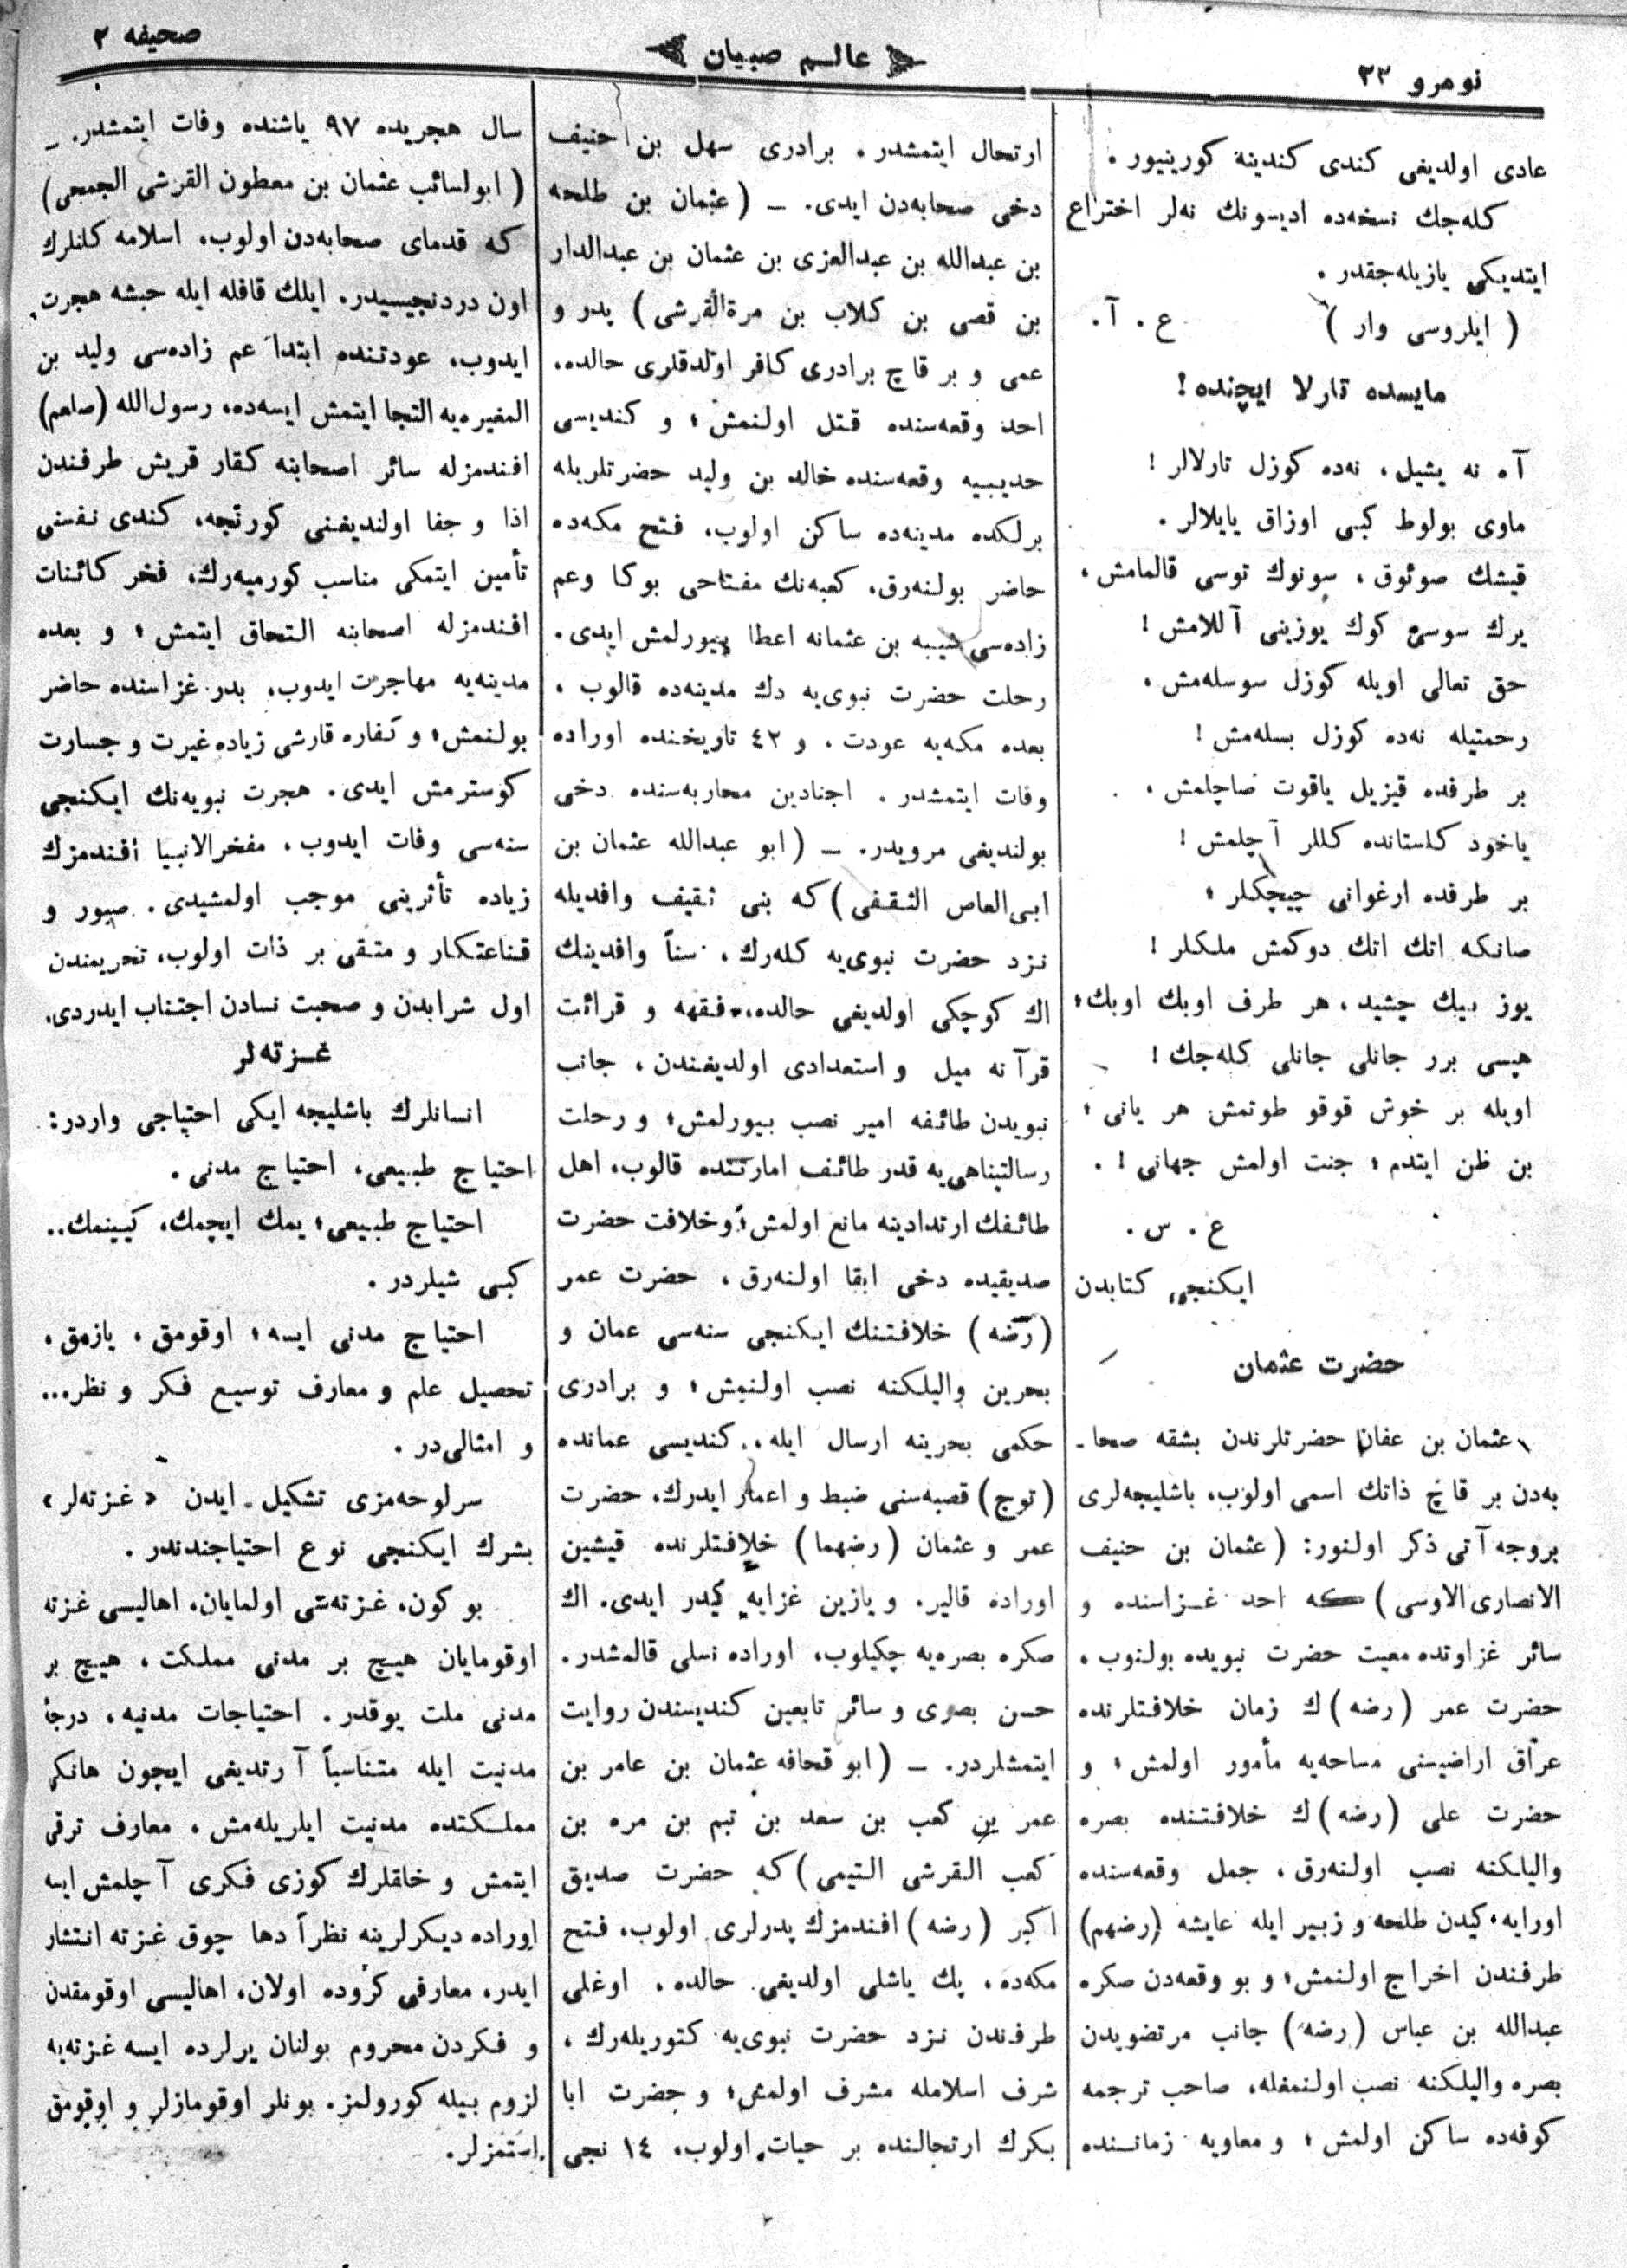 نومرو ٢٣
عالم صبیان
صحیفه ٢
عادی اولدیغی کندی کندینه کورینیور .
کله‌جك نسخه‌ده ادیسونك نه‌لر اختراع
ایتدیکی یازیله‌جقدر .
( ایلروسی وار )   ع . آ .
مایسده تارلا ایچنده !
آه نه یشیل ، نه‌ده کوزل تارلالر !
ماوی بولوط کبی اوزاق یایلالر .
قیشك صوئوق ، سونوك توسی قالمامش ،
یرك سوسی کوك یوزینی آللامش !
حق تعالی اویله کوزل سوسله‌مش ،
رحمتیله نه‌ده کوزل بسله‌مش !
بر طرفده قیزیل یاقوت صاچلمش ،
یاخود کلستانده کللر آچلمش !
بر طرفده ارغوانی چیچکلر ؛
صانکه اتك اتك دوکمش ملکلر !
یوز بیك چشید ، هر طرف اوبك اوبك ؛
هپسی برر جانلی جانلی کله‌جك !
اویله بر خوش قوقو طوتمش هر یانی ؛
بن ظن ایتدم ؛ جنت اولمش جهانی ! .
ع . س .
ایکنجی کتابدن
حضرت عثمان
عثمان بن عفان حضرتلرندن بشقه صحا-
به‌دن بر قاچ ذاتك اسمی اولوب، باشلیجه‌لری
بروجه آتی ذکر اولنور: (عثمان بن حنیف
الانصاری‌الاوسی) که احد غزاسنده و
سائر غزاوتده معیت حضرت نبویده بولنوب ،
حضرت عمر (رضه)ك زمان خلافتلرنده
عراق اراضیسنی مساحه‌یه مأمور اولمش ؛ و
حضرت علی (رضه)ك خلافتنده بصره
والیلکنه نصب اولنه‌رق ، جمل وقعه‌سنده
اورایه کیدن طلحه و زبیر ایله عایشه (رضهم)
طرفندن اخراج اولنمش؛ و بو وقعه‌دن صکره
عبدالله بن عباس (رضه) جانب مرتضویدن
بصره والیلکنه نصب اولنمغله، صاحب ترجمه
کوفه‌ده ساکن اولمش ؛ و معاویه زماننده
ارتحال ایتمشدر . برادری سهل بن حنیف
دخی صحابه‌دن ایدی . ــ (عثمان بن طلحه
بن عبدالله بن عبدالعزی بن عثمان بن عبدالدار
بن قصی بن کلاب بن مرة‌القرشی) پدر و
عمی و بر قاچ برادری کافر اولدقلری حالده،
احد وقعه‌سنده قتل اولنمش ؛ و کندیسی
حدیبیه وقعه‌سنده خالد بن ولید حضرتلریله
برلکده مدینه‌ده ساکن اولوب، فتح مکه‌ده
حاضر بولنه‌رق، کعبه‌نك مفتاحی بوکا و عم
زاده‌سی شیبه بن عثمانه اعطا بیورلمش ایدی .
رحلت حضرت نبوی‌یه دك مدینه‌ده قالوب ،
بعده مکه‌یه عودت ، و ٤٢ تاریخنده اوراده
وفات ایتمشدر . اجنادین محاربه‌سنده دخی
بولندیغی مرویدر. ــ (ابو عبدالله عثمان بن
ابی‌العاص الثقفی) که بنی ثقیف وافدیله
نزد حضرت نبوی‌یه کله‌رك ، سناً وافدینك
اك کوچکی اولدیغی حالده، فقهه و قرائت
قرآنه میل و استعدادی اولدیغندن ، جانب
نبویدن طائفه امیر نصب بیورلمش؛ و رحلت
رسالتپناهی‌یه قدر طائف امارتنده قالوب، اهل
طائفك ارتدادینه مانع اولمش؛ و خلافت حضرت
صدیقیده دخی ابقا اولنه‌رق ، حضرت عمر
(رضه) خلافتنك ایکنجی سنه‌سی عمان و
بحرین والیلکنه نصب اولنمش ؛ و برادری
حکمی بحرینه ارسال ایله، کندیسی عمانده
(توج) قصبه‌سنی ضبط و اعمار ایدرك، حضرت
عمر و عثمان (رضهما) خلافتلرنده قیشین
اوراده قالیر . و یازین غزایه کیدر ایدی. اك
صکره بصره‌یه چکیلوب، اوراده نسلی قالمشدر.
حسن بصری و سائر تابعین کندیسندن روایت
ایتمشلردر. ــ (ابو قحافه عثمان بن عامر بن
عمر بن کعب بن سعد بن تیم بن مره بن
کعب القرشی التیمی) که حضرت صدیق
اکبر (رضه) افندمزك پدرلری اولوب، فتح
مکه‌ده ، پك یاشلی اولدیغی حالده ، اوغلی
طرفندن نزد حضرت نبوی‌یه کتوریله‌رك ،
شرف اسلامله مشرف اولمش؛ و حضرت ابا
بکرك ارتحالنده بر حیات اولوب، ١٤ نجی
سال هجریده ٩٧ یاشنده وفات ایتمشدر. ــ
(ابولسائب عثمان بن معطون القرشی الجمحی)
که قدمای صحابه‌دن اولوب، اسلامه کلنلرك
اون دردنجیسیدر. ایلك قافله ایله حبشه هجرت
ایدوب، عودتنده ابتدا عم زاده‌سی ولید بن
المغیره‌یه التجا ایتمش ایسه‌ده، رسول‌الله (صلعم)
افندمزله سائر اصحابنه کفار قریش طرفندن
اذا و جفا اولندیغنی کورنجه، کندی نفسنی
تأمین ایتمکی مناسب کورمیه‌رك، فخر کائنات
افندمزله اصحابنه التحاق ایتمش ؛ و بعده
مدینه‌یه مهاجرت ایدوب، بدر غزاسنده حاضر
بولنمش؛ و کفاره قارشی زیاده غیرت و جسارت
کوسترمش ایدی. هجرت نبویه‌نك ایکنجی
سنه‌سی وفات ایدوب، مفخرالانبیا افندمزك
زیاده تأثرینی موجب اولمشیدی. صبور و
قناعتکار و متقی بر ذات اولوب، تحریمندن
اول شرابدن و صحبت نسادن اجتناب ایدردی.
غزته‌لر
انسانلرك باشلیجه ایکی احتیاجی واردر:
احتیاج طبیعی، احتیاج مدنی .
احتیاج طبیعی؛ یمك ایچمك، کیینمك..
کبی شیلردر .
احتیاج مدنی ایسه؛ اوقومق ، یازمق ،
تحصیل علم و معارف توسیع فکر و نظر...
و امثالی‌در .
سرلوحه‌مزی تشکیل ایدن «غزته‌لر»
بشرك ایکنجی نوع احتیاجندندر .
بو کون، غزته‌سی اولمایان، اهالیسی غزته
اوقومایان هیچ بر مدنی مملکت ، هیچ بر
مدنی ملت یوقدر . احتیاجات مدنیه ، درجهٔ
مدنیت ایله متناسباً آرتدیغی ایچون هانکی
مملکتده مدنیت ایلریله‌مش ، معارف ترقی
ایتمش و خلقلرك کوزی فکری آچلمش ایسه
اوراده دیکرلرینه نظراً دها چوق غزته انتشار
ایدر، معارفی کروده اولان، اهالیسی اوقومقدن
و فکردن محروم بولنان یرلرده ایسه غزته‌یه
لزوم بیله کورولمز. بونلر اوقومازلر و اوقومق
استمزلر.